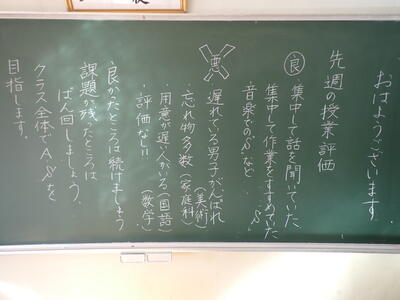 おはようございます
先週の授業評価
良 集中して話を聞いていた
集中して作業をすすめていた
音楽でのSなど
悪
遅れている男子がんばれ(美術)
・忘れ物多数(家庭科)
・用意が遅い人がいる(国語)
・評価なし!!(数学)
良かたところは続けましょう
課題が残ったところは
ばん回しましょう。
クラス全体でA,Sを
目指します。